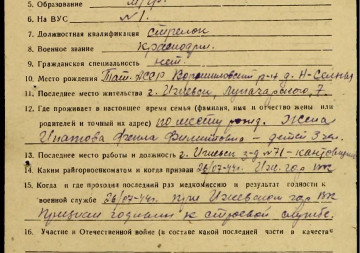 5. Образование
6. На ВУС №1.
7. Должностная квалификация стрелок
8. Военное звание красноарм.
9. Гражданская специальность нет.
10. Место рождения Тат. АССР Ворошиловский р-н д. Н-
11. Последнее место жительства г. Ижевск, Луначарского, 7.
12. Где проживает в настоящее время семья (фамилия, имя и отчество жены или
родителей и точный на адрес) по месту рожд. Жена
Ипатова – детей 3 чел.
13. Последнее место работы и должность г. Ижевск з-д №71 –
14. Каким райгорвоенкоматом и когда призван 26/07-44г. Иж. гор ВК
15. Когда и где проходил последний раз медкомиссию и результат годности к
военной службе 26/07-44г. при Ижевском гор ВК
Признан годным к строевой службе.
16. Участие в Отечественной войне (в составе какой последней части и в качестве